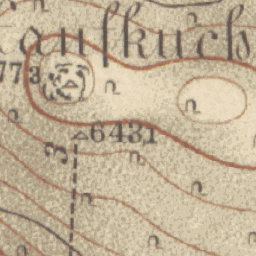 auskuch
773
6431